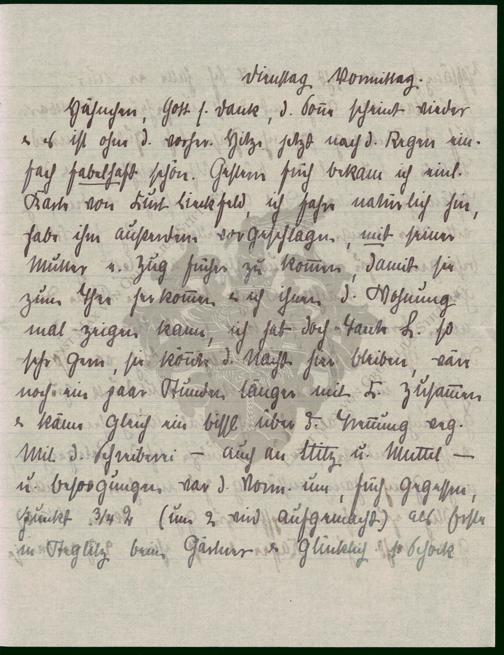 Dienstag Vormittag.
Hähnchen, Gott s. Dank, d. Sonne scheint wieder
u. es ist ohne d. vorher. Hitze jetzt nach d. Regen ein-
fach fabelhaft schön. Gestern früh bekam ich
Karte von Kurt Lienkfeld, ich fahre natürlich hin,
habe ihm außerdem vorgeschlagen, mit seiner
Mutter e. Zug früher zu kommen, damit sie
zum Thee herkommen u. ich ihnen d. Wohnung
mal zeigen kann, ich hab doch Tante L. so
sehr gern, sie könnte d. Nacht hier bleiben, wäre
noch ein paar Stunden länger mit K. zusammen
u. käme gleich ein bissl über d. Trennung weg.
Mit d. Schreiberei — auch an Stitz u. Muttel —
u. Besorgungen war d. Vorm. um, früh gegessen,
Punkt 3/4 2 (um 2 wird aufgemacht) als Erste
in Steglitz beim Gärtner u. glücklich